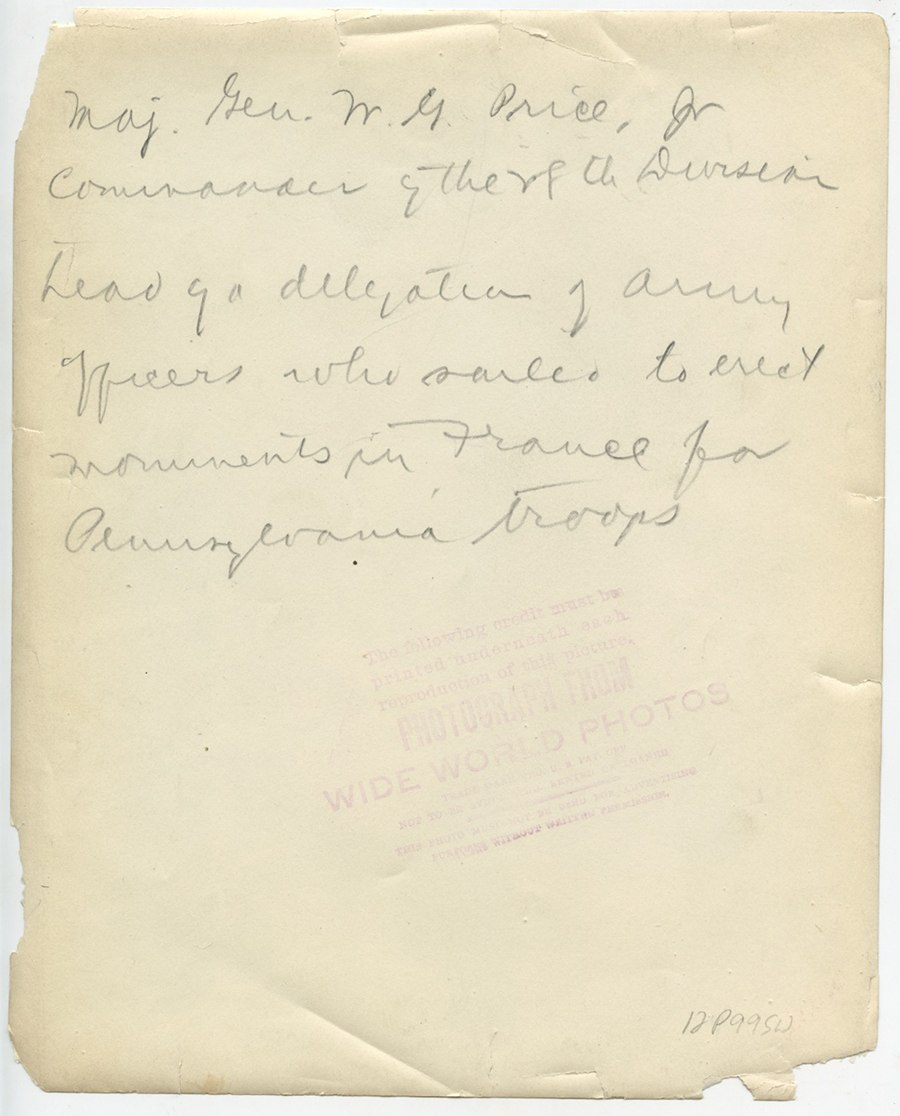 Maj. Gen. W. G. Price, Jr
Commander of the 28th Division
head of a delegation of Army
officers who sailed to erect
monuments in France for
Pennsylvania troops
The following credit must be
printed underneath each
reproduction of this picture.
PHOTOGRAPH FROM
WIDE WORLD PHOTOS
NOT TO BE
THIS PHOTO MUST NOT BE USED FOR ADVERTISING
PURPOSES WITHOUT WRITTEN PERMISSION.